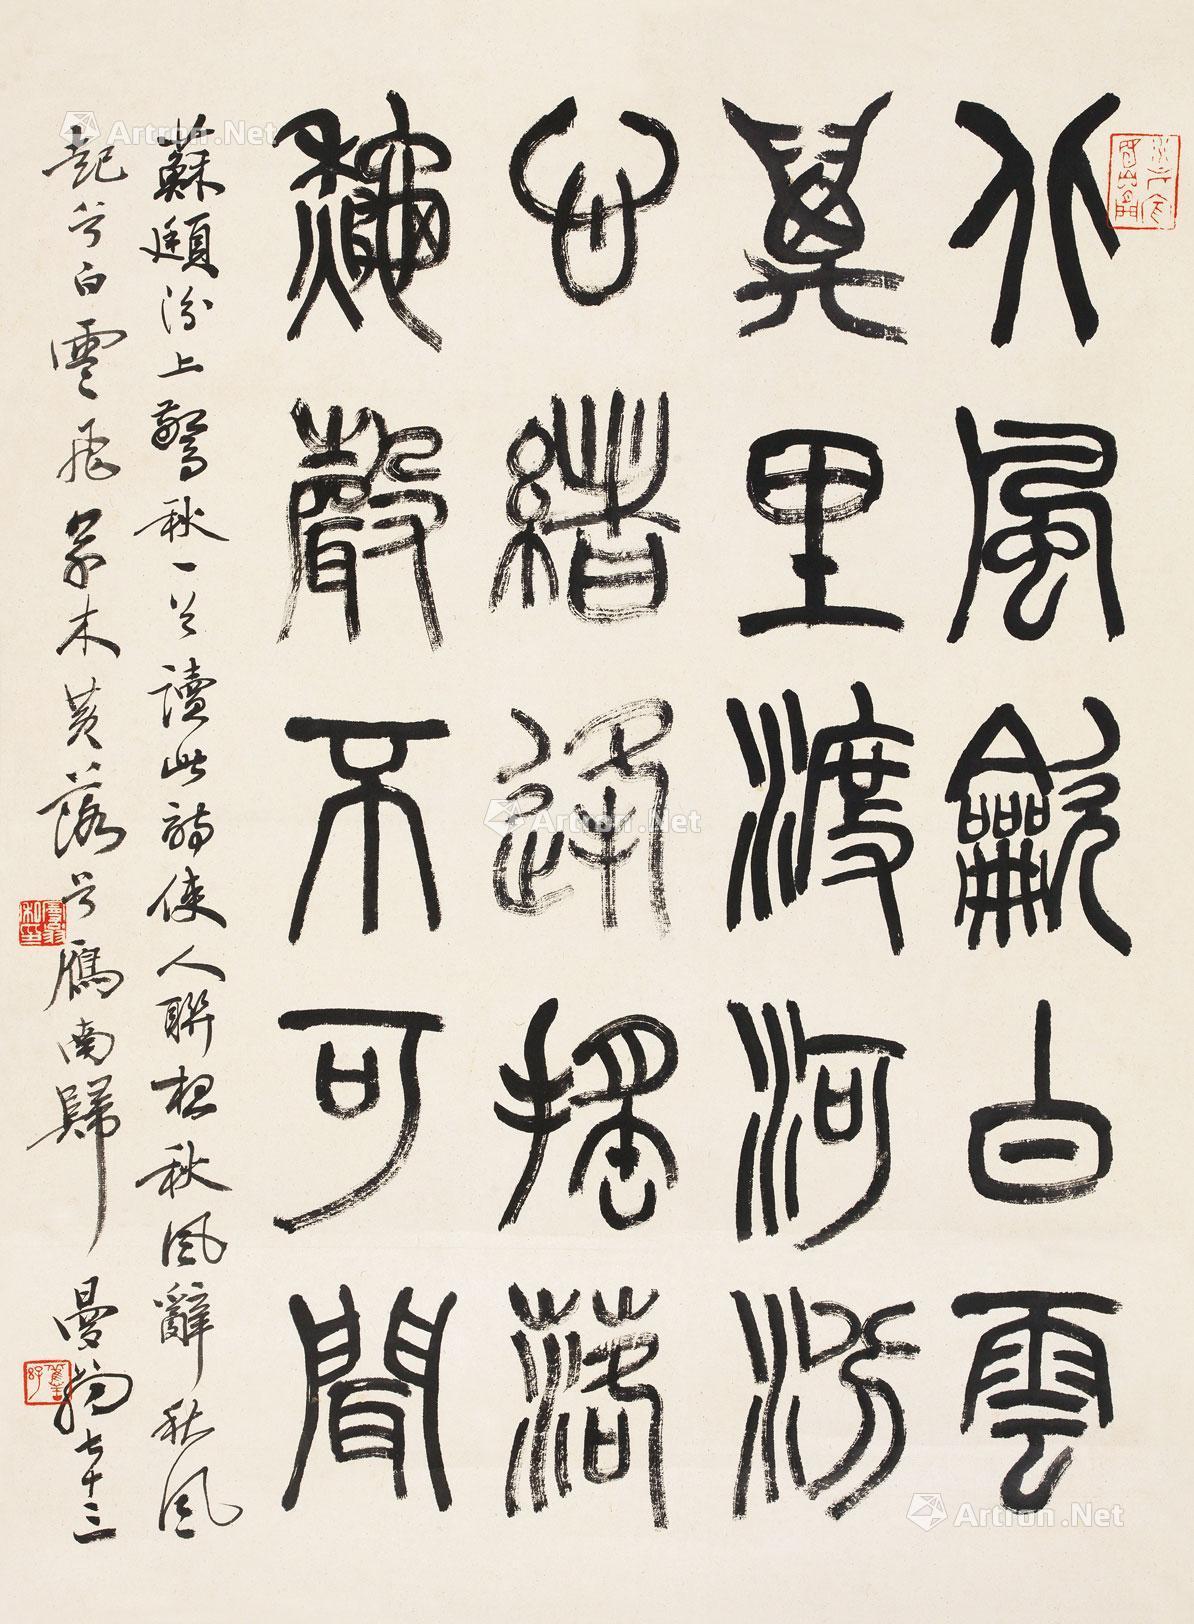 北風龡白雲
萬里渡河汾
心緒逢搖落
秋聲不可聞
蘇頲汾上驚秋一首讀此詩使人聯想秋風辭秋風
起兮白雲飛草木黃落兮雁南歸 曼翁七十三
Artron.Net
Artron.Net
Artron.Net